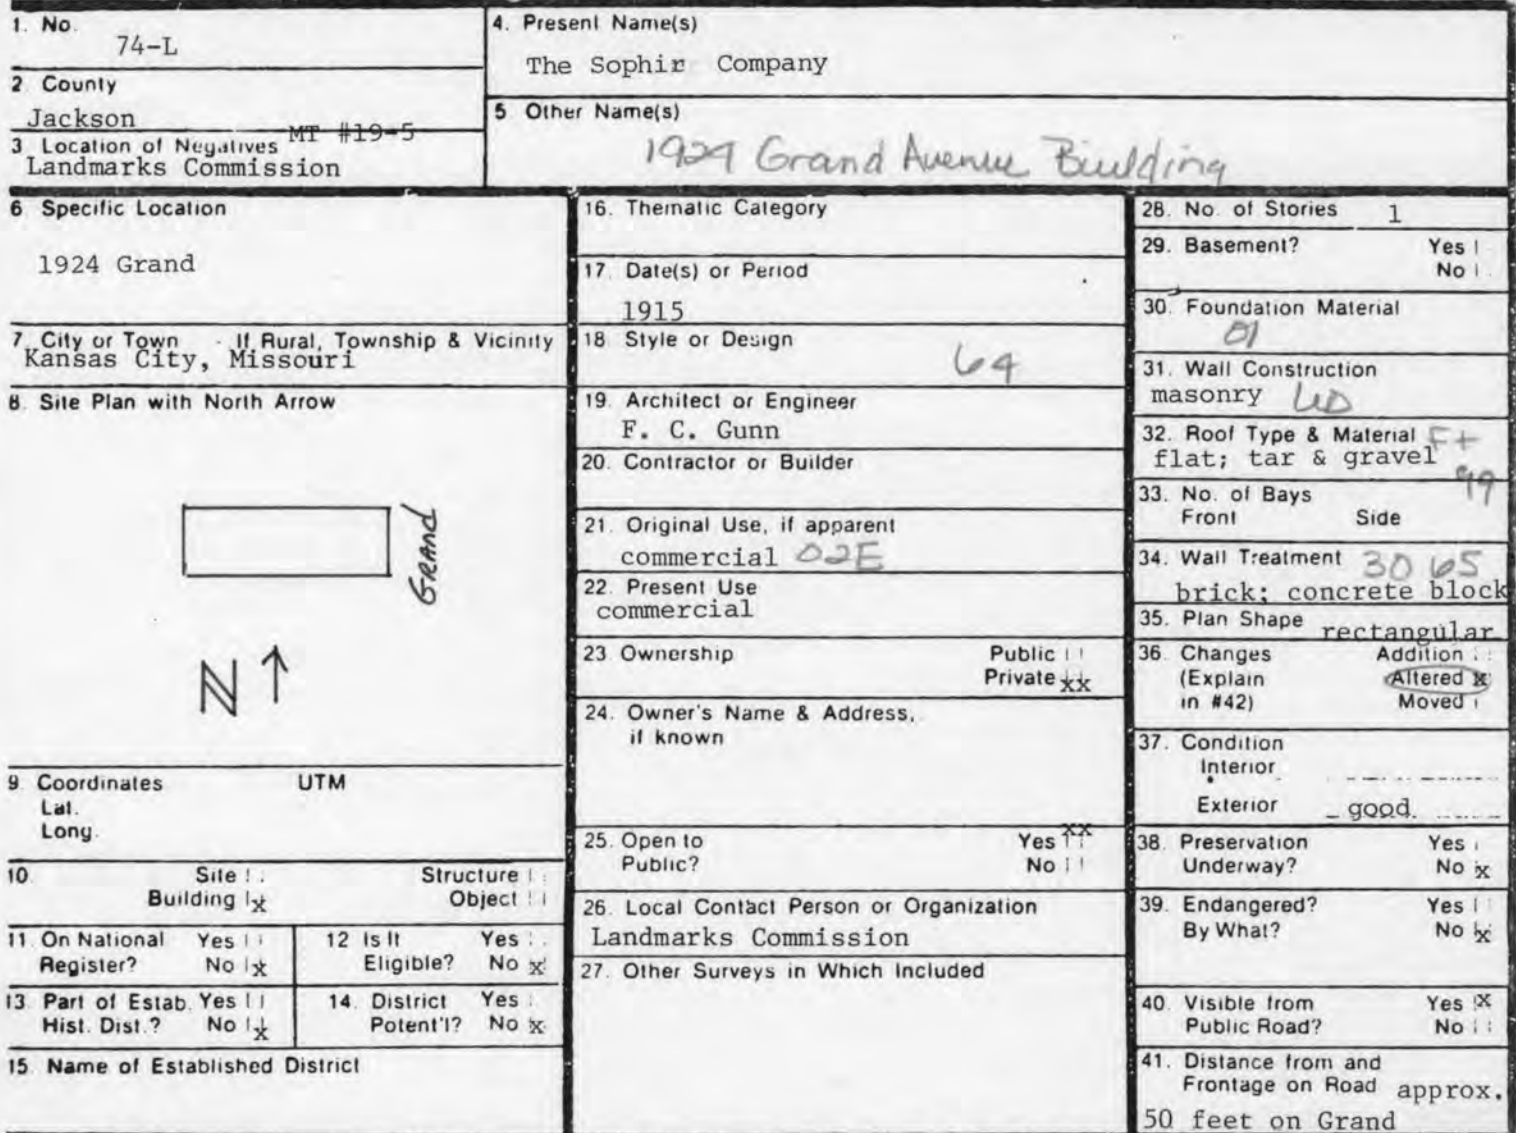 1. No.
74-L
2 County
Jackson
MT #19-5
3 Location of Negatives
Landmarks Commission
4. Present Name(s)
The Sophir Company
5 Other Name(s)
1924 Grand Avenue Building
6 Specific Location
1924 Grand
7. City or Town If Rural, Township & Vicinity
Kansas City, Missouri
8. Site Plan with North Arrow
GRAND
N
9. Coordinates UTM
Lat.
Long.
10. Site Structure
Building x Object
11. On National Yes
Register? No x
12 Is It Yes
Eligible? No x
13. Part of Estab. Yes
Hist. Dist.? No x
14. District Yes
Potent'l? No x
15. Name of Established District
16. Thematic Category
17. Date(s) or Period
1915
18 Style or Design
64
19. Architect or Engineer
F. C. Gunn
20. Contractor or Builder
21. Original Use, if apparent
commercial 02E
22. Present Use
commercial
23 Ownership Public
Private xx
24. Owner's Name & Address,
if known
25. Open to Yes xx
Public? No
26. Local Contact Person or Organization
Landmarks Commission
27. Other Surveys in Which Included
28. No. of Stories 1
29. Basement? Yes
No
30. Foundation Material
01
31. Wall Construction
masonry
32. Roof Type & Material
flat; tar & gravel
99
33. No. of Bays
Front Side
34. Wall Treatment 30 65
brick; concrete block
35. Plan Shape rectangular
36. Changes Addition
(Explain Altered x
in #42) Moved
37. Condition
Interior
Exterior good
38. Preservation Yes
Underway? No x
39. Endangered? Yes
By What? No x
40. Visible from Yes x
Public Road? No
41. Distance from and
Frontage on Road approx.
50 feet on Grand